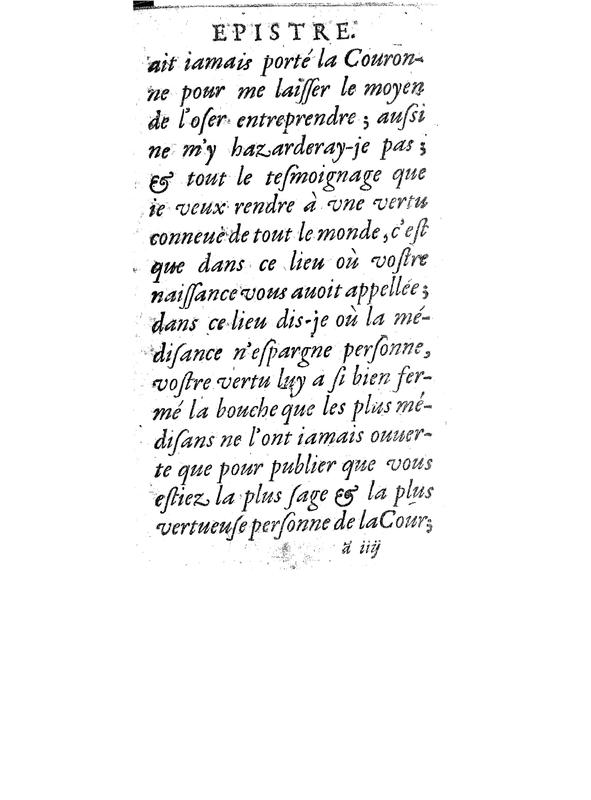 EPISTRE.
ait iamais porté la Couron-
ne pour me laiſſer le moyen
de l'oſer entreprendre ; auſsi
ne m'y hazarderay-je pas ;
& tout le teſmoignage que
ie veux rendre à vne vertu
conneuë de tout le monde, c'eſt
que dans ce lieu où voſtre
naiſſance vous auoit appellée ;
dans ce lieu dis-je où la mé-
diſance n'eſpargne perſonne,
voſtre vertu luy a ſi bien fer-
mé la bouche que les plus mé-
diſans ne l'ont iamais ouuer-
te que pour publier que vous
eſtiez la plus ſage & la plus
vertueuſe perſonne de la Cour;
á iiij